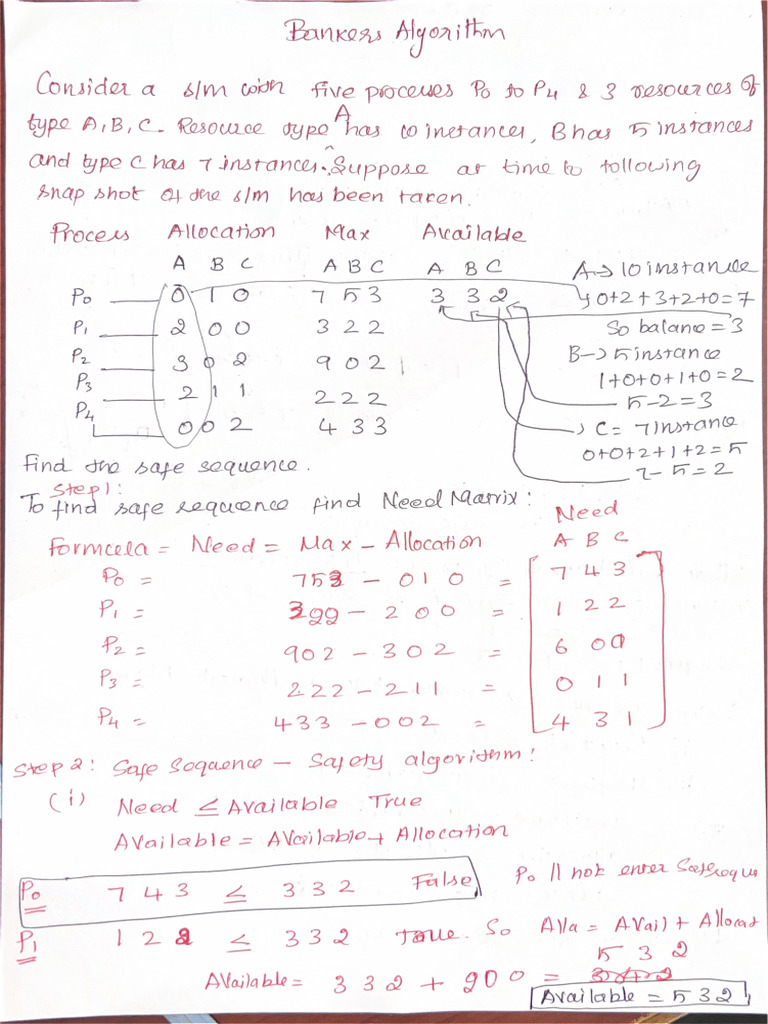 Bankers Algorithm
Consider a s/m with five processes P0 to P4 & 3 resources of
type A, B, C. Resource type A has 10 instances, B has 5 instances
and type C has 7 instances. Suppose at time to following
snap shot of the s/m has been taken.
Process Allocation Max Available
A B C A B C A B C A → 10 instance
P0 0 1 0 7 5 3 3 3 2 0+2+3+2+0=7
P1 2 0 0 3 2 2 So balance = 3
P2 3 0 2 9 0 2 B → 5 instance
1+0+0+1+0=2
P3 2 1 1 2 2 2 5-2=3
P4 0 0 2 4 3 3 C = 7 Instance
0+0+2+1+2=5
7-5=2
Find the safe sequence.
Step 1:
To find safe sequence find Need Matrix:
Need
Formula = Need = Max - Allocation A B C
P0 = 753 - 010 = 7 4 3
P1 = 322 - 200 = 1 2 2
P2 = 902 - 302 = 6 0 0
P3 = 222 - 211 = 0 1 1
P4 = 433 - 002 = 4 3 1
Step 2: Safe Sequence - Safety algorithm:
(i) Need ≤ Available True
Available = Available + Allocation
P0 7 4 3 ≤ 3 3 2 False P0 ll not enter Safe sequ
P1 1 2 2 ≤ 3 3 2 True. So Ava = Avail + Allocat
5 3 2
Available = 3 3 2 + 200 =
Available = 532